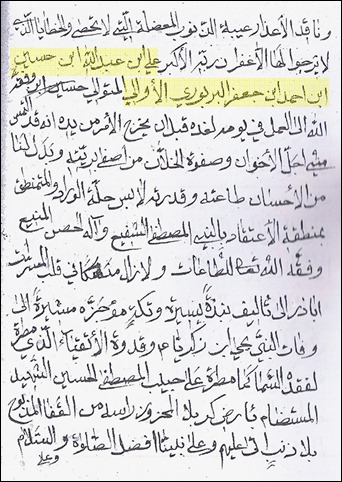 وناقد الأعذار عيبة الذنوب المعضلة التي لا تحصى والخطايا التي
لا يرجوا لها الا غفران ربه الأكبر علي ابن عبد الله ابن حسين
ابن احمد ابن جعفر البربوري الأوالي المتولي حسين ابن وفقه
الله الى العمل في يومه لغده قبل ان يخرج الأمر من يده انه قد التمس
مني اجل الأخوان وصفوة الخلان من
من الأحسان طاعته وقدرته لابس حلة الورا والمتمنطق
بمنطقة الأعتقاد بالنبي المصطفى الشفيع وآله الحصن المنيع
وفقه الله تعا للطاعات ولا زال قلب المسرات
ابادر الى تأليف نبذة يسيرة وتكرمة مؤخره مشيرة الى
وفات النبي يحيى ابن زكريا ع وقدوة الأتقياء الذي مطرة
لفقده السما كما مطرة على حبيب المصطفى الحسين الشهيد
المستضام بأرض كربلا المحزوز راسه من القفا المذبوح
بلا ذنب اتى عليهم وعلى نبينا افضل الصلوة والسلام
وعلى